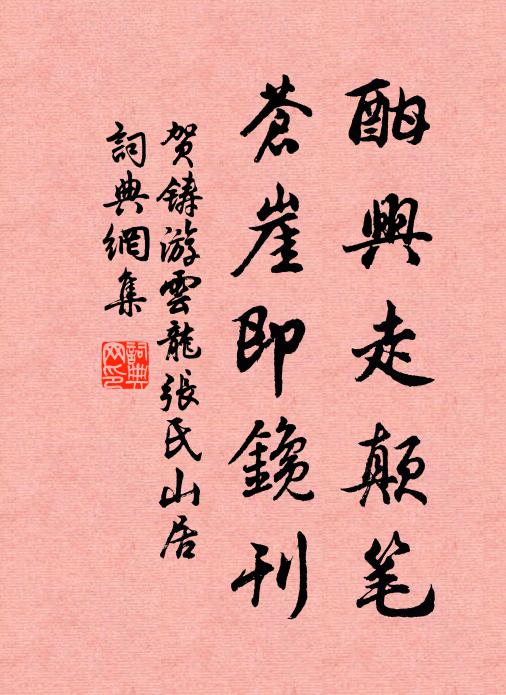 酣興走颠笔
蒼崖即鑱刊
贺鑄游雲龍張氏山居
詞典網集
詞典网印